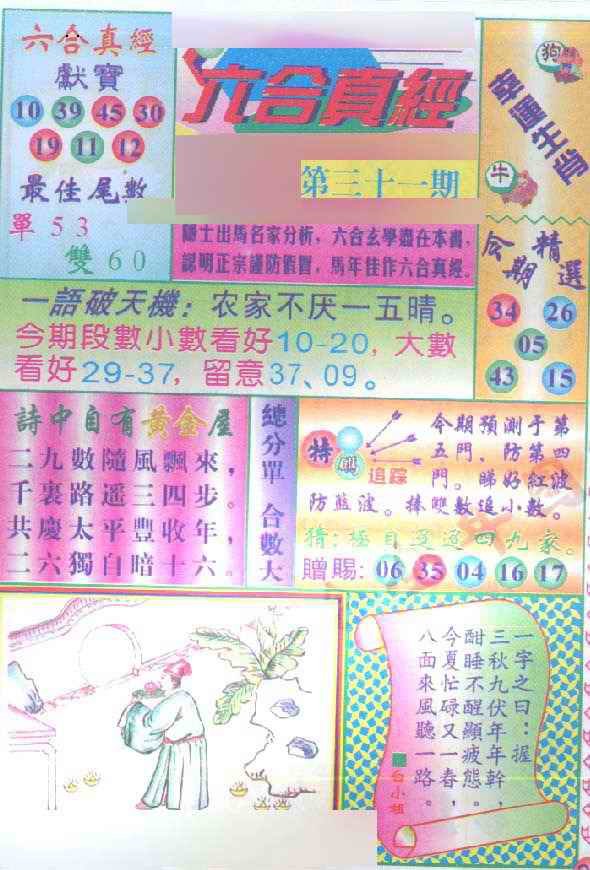 六合真經
獻寶
10 39 45 30
19 11 12
最佳尾數
單 5 3
雙 6 0
六合真經
第三十一期
士出馬名家分析，六合玄學盡在本書，
認明正宗謹防假冒，馬年佳作六合真經。
狗
幸運生肖
牛
今期精選
34 26
05
43 15
一語破天機：农家不厌一五晴。
今期段數小數看好10-20，大數
看好29-37，留意37、09。
詩中自有黃金屋
二九數隨風飄來，
千裏路遥三四步。
共慶太平豐收年，
二六獨自暗十六。
總分單 合數大
特
追踪
今期預測于第
五門、防第四
門。睇好紅波
防藍波。捧雙數追小數。
猜：極目遥遥四九家。
贈賜：06 35 04 16 17
一字之曰：握
三秋九伏年年幹，
酣睡不醒顯疲態。
今夏忙碌又一春，
八面來風聽一路。